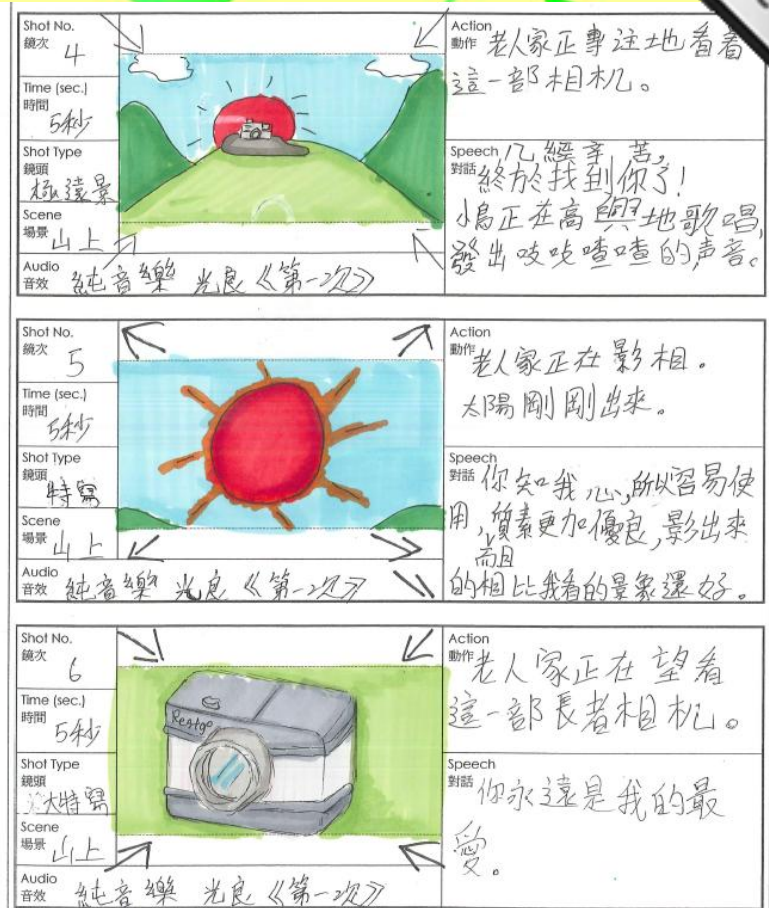 Shot No.
鏡次
4
Time (sec.)
時間
5秒
Shot Type
鏡頭
極遠景
Scene
場景 山上
Audio
音效 純音樂 光良《第一次》
Action
動作 老人家正專注地看着
這一部相机。
Speech
對話
經辛苦,
終於找到你了!
小鳥正在高興地歌唱,
發出吱吱喳喳的声音。
Shot No.
鏡次
5
Time (sec.)
時間
5秒
Shot Type
鏡頭
特寫
Scene
場景 山上
Audio
音效 純音樂 光良《第一次》
Action
動作 老人家正在影相。
太陽剛剛出來。
Speech
對話 你知我心,所以容易使
用,質素更加優良,影出來
而且
的相比我看的景象還好。
Shot No.
鏡次
6
Time (sec.)
時間
5秒
Shot Type
鏡頭
大特寫
Scene
場景 山上
Audio
音效 純音樂 光良《第一次》
Action
動作 老人家正在望着
這一部長者相机。
Speech
對話 你永遠是我的最
愛。